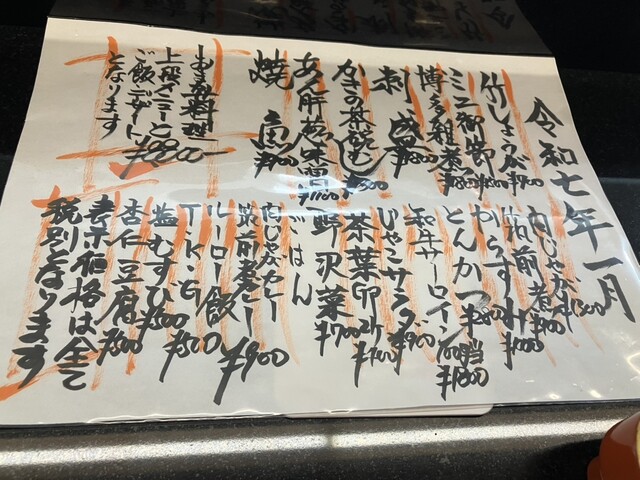 令和七年一月
竹の子しょうが ¥700
ミニ御節 ¥1800
博多雑煮 ¥1800
刺盛 ¥1800
かきの茶碗むし ¥1500
あん肝 ¥1700
焼魚
おまかせ料理
上段メニューと
ご飯デザート
となります
肉じゃが ¥1300
筑前煮 ¥900
からすみ ¥1000
とんかつ ¥2800
和牛サーロイン100g当 ¥1800
じゃこサラダ ¥900
茶葉卵2ケ ¥700
野沢菜 ¥700
ごはん
肉じゃがカレー
筑前煮カレー
ルーロー飯 ¥900
T.K.G ¥500
塩むすび ¥500
杏仁豆腐 ¥500
表示価格は全て
税別となります